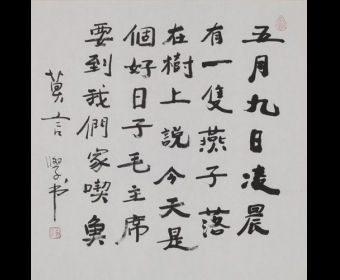 五月九日凌晨
有一隻燕子落
在樹上說今天是
個好日子毛主席
要到我們家喫魚
莫言學書